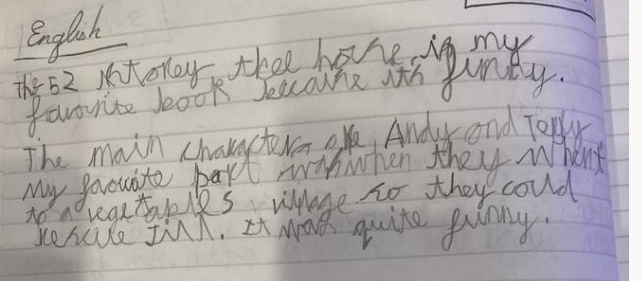 English
the 52 storey tree house is my
favourite book because its funny.
The main characters are Andy and Terry
My favouite part was when they whent
to a vegetables village so they could
rescue Jill. It was quite funny.